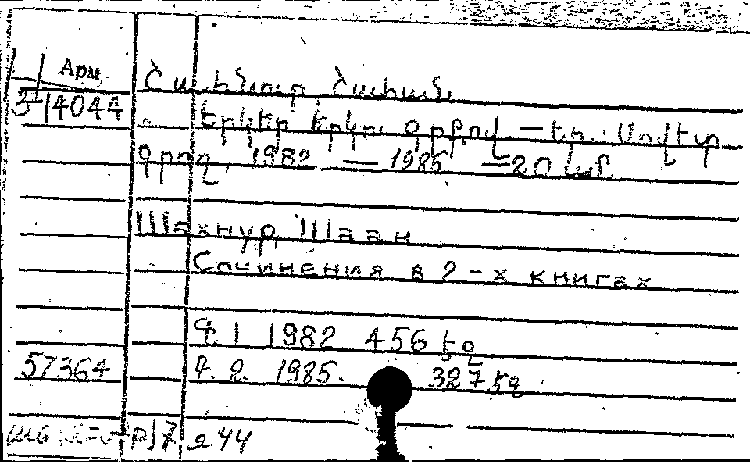 Арм
3-14044
Շահնուր, Շահան
Երկեր երկու գրքով — Եր.: Սովետ.
գրող, 1982 — 1985 — 20 սմ
Шахнур, Шаан
Сочинения в 2-х книгах
Գ. 1 1982 456 էջ
57364
Գ. 2. 1985. 327 էջ